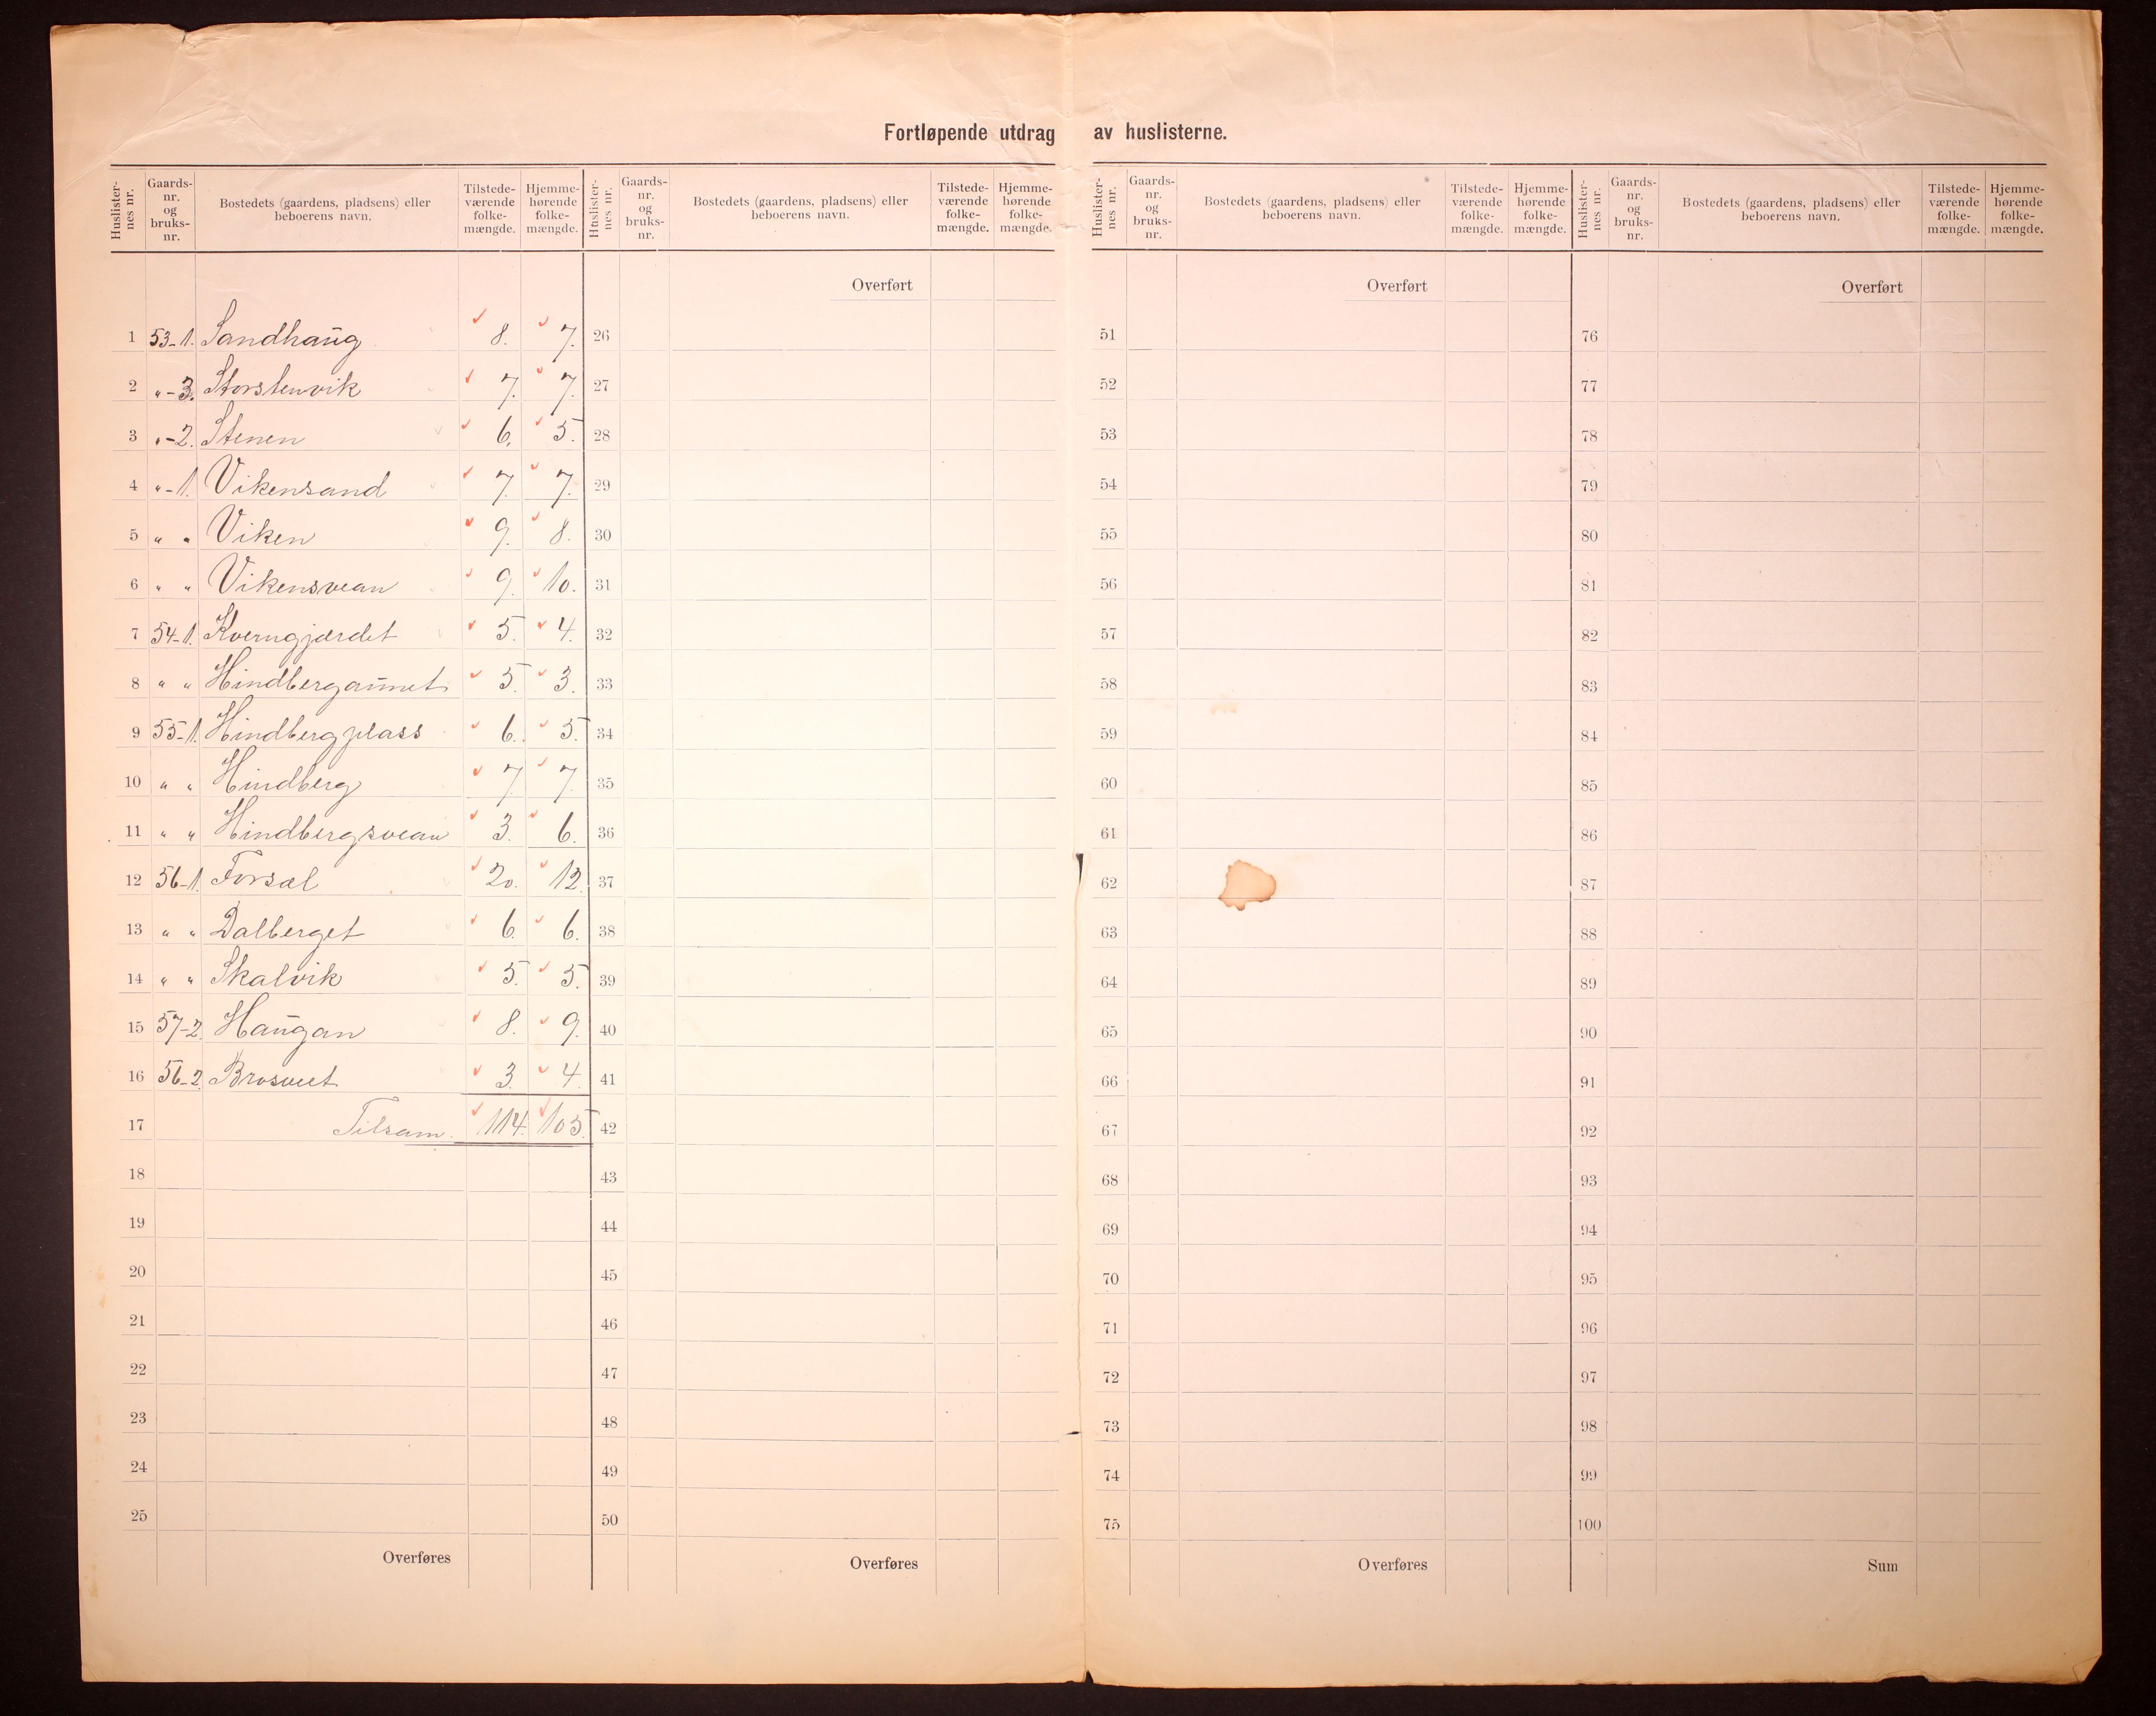 Fortløpende utdrag av huslisterne.
Huslister-nes nr. Gaards-nr. og bruks-nr. Bostedets (gaardens, pladsens) eller beboerens navn. Tilstede-værende folke-mængde. Hjemme-hørende folke-mængde. Huslister-nes nr. Gaards-nr. og bruks-nr. Bostedets (gaardens, pladsens) eller beboerens navn. Tilstede-værende folke-mængde. Hjemme-hørende folke-mængde. Huslister-nes nr. Gaards-nr. og bruks-nr. Bostedets (gaardens, pladsens) eller beboerens navn. Tilstede-værende folke-mængde. Hjemme-hørende folke-mængde. Huslister-nes nr. Gaards-nr. og bruks-nr. Bostedets (gaardens, pladsens) eller beboerens navn. Tilstede-værende folke-mængde. Hjemme-hørende folke-mængde.
Overført Overført Overført
1 53-1. Sandhaŭg 8. 7. 26 51 76
2 " -3. Storstenvik 7. 7. 27 52 77
3 " -2. Stenen 6. 5. 28 53 78
4 " -1. Vikensand 7. 7. 29 54 79
5 " " Viken 9. 8. 30 55 80
6 " " Vikensvean 9. 10. 31 56 81
7 54-1. Kverngjærdet 5. 4. 32 57 82
8 " " Hindbergaŭnet 5. 3. 33 58 83
9 55-1. Hindbergplass 6. 5. 34 59 84
10 " " Hindberg 7. 7. 35 60 85
11 " " Hindbergsvean 3. 6. 36 61 86
12 56-1. Forsæl 20. 12. 37 62 87
13 " " Dalberget 6. 6. 38 63 88
14 " " Skalvik 5. 5. 39 64 89
15 57-2. Haŭgan 8. 9. 40 65 90
16 56-2. Brosveet 3. 4. 41 66 91
17 Tilsam. 114. 105. 42 67 92
18 43 68 93
19 44 69 94
20 45 70 95
21 46 71 96
22 47 72 97
23 48 73 98
24 49 74 99
25 50 75 100
Overføres Overføres Overføres Sum